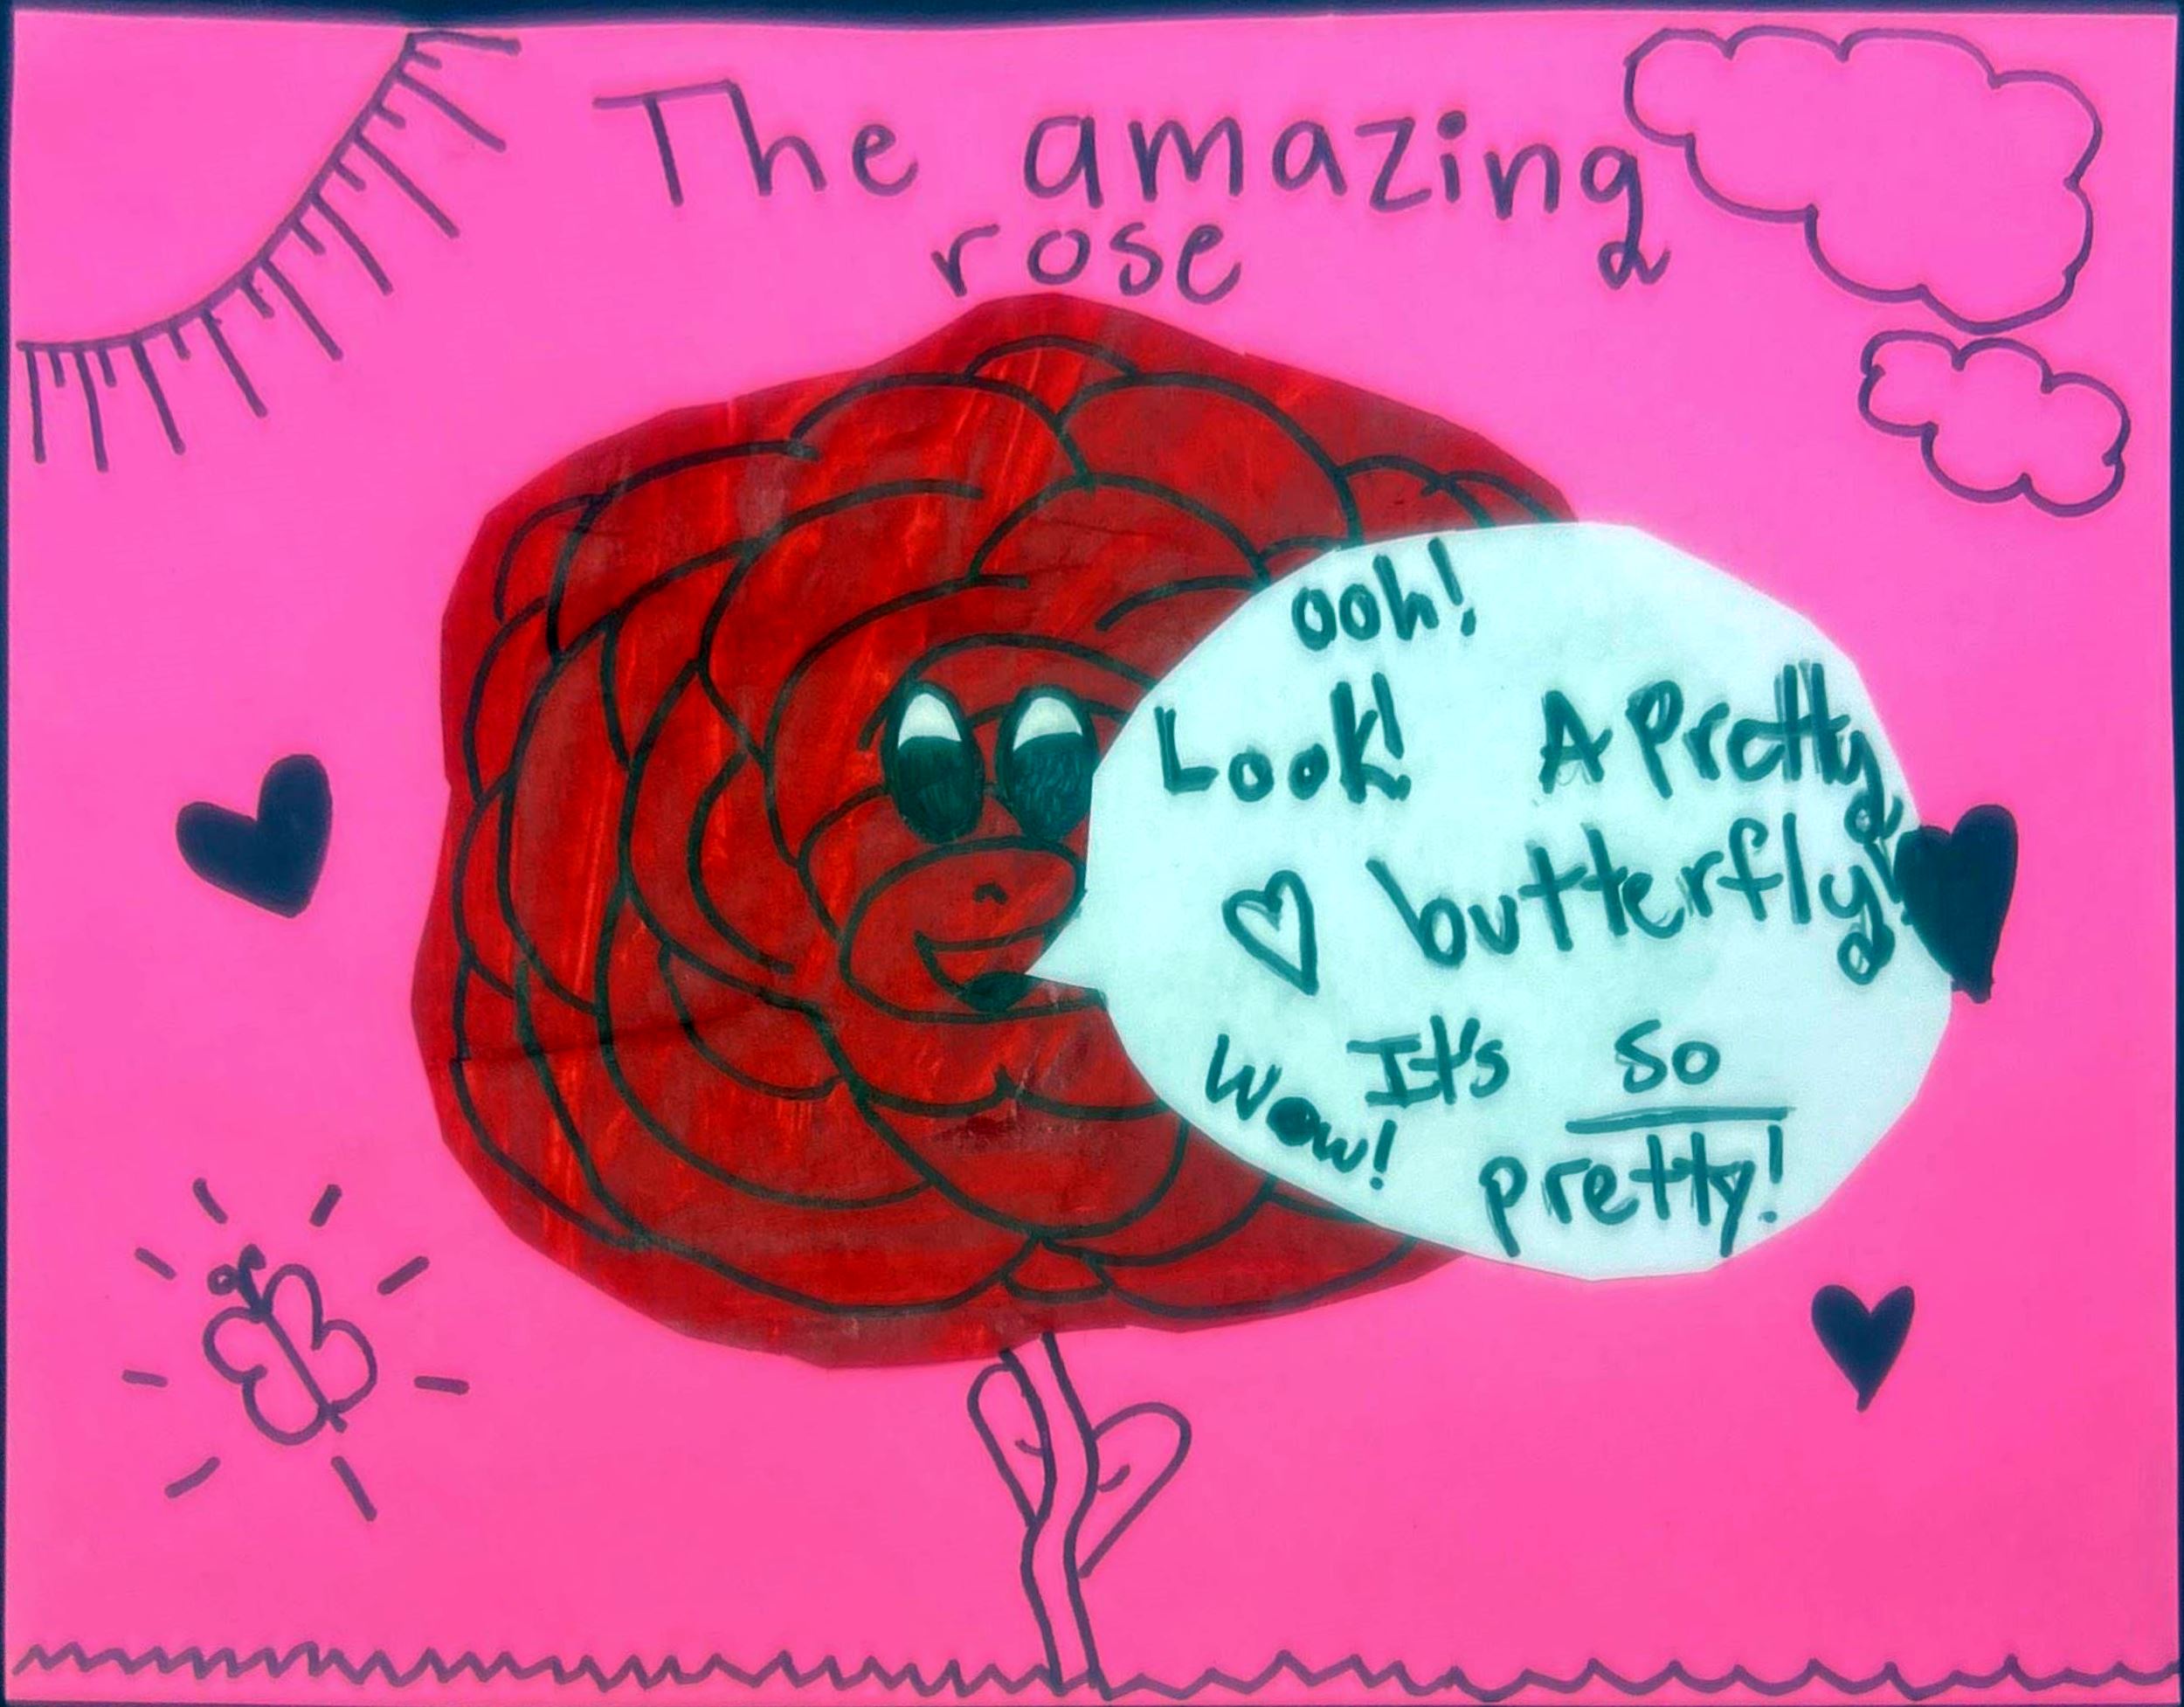 The amazing
rose
ooh!
Look! A Pretty
♡ butterfly!
Wow! It's so
pretty!